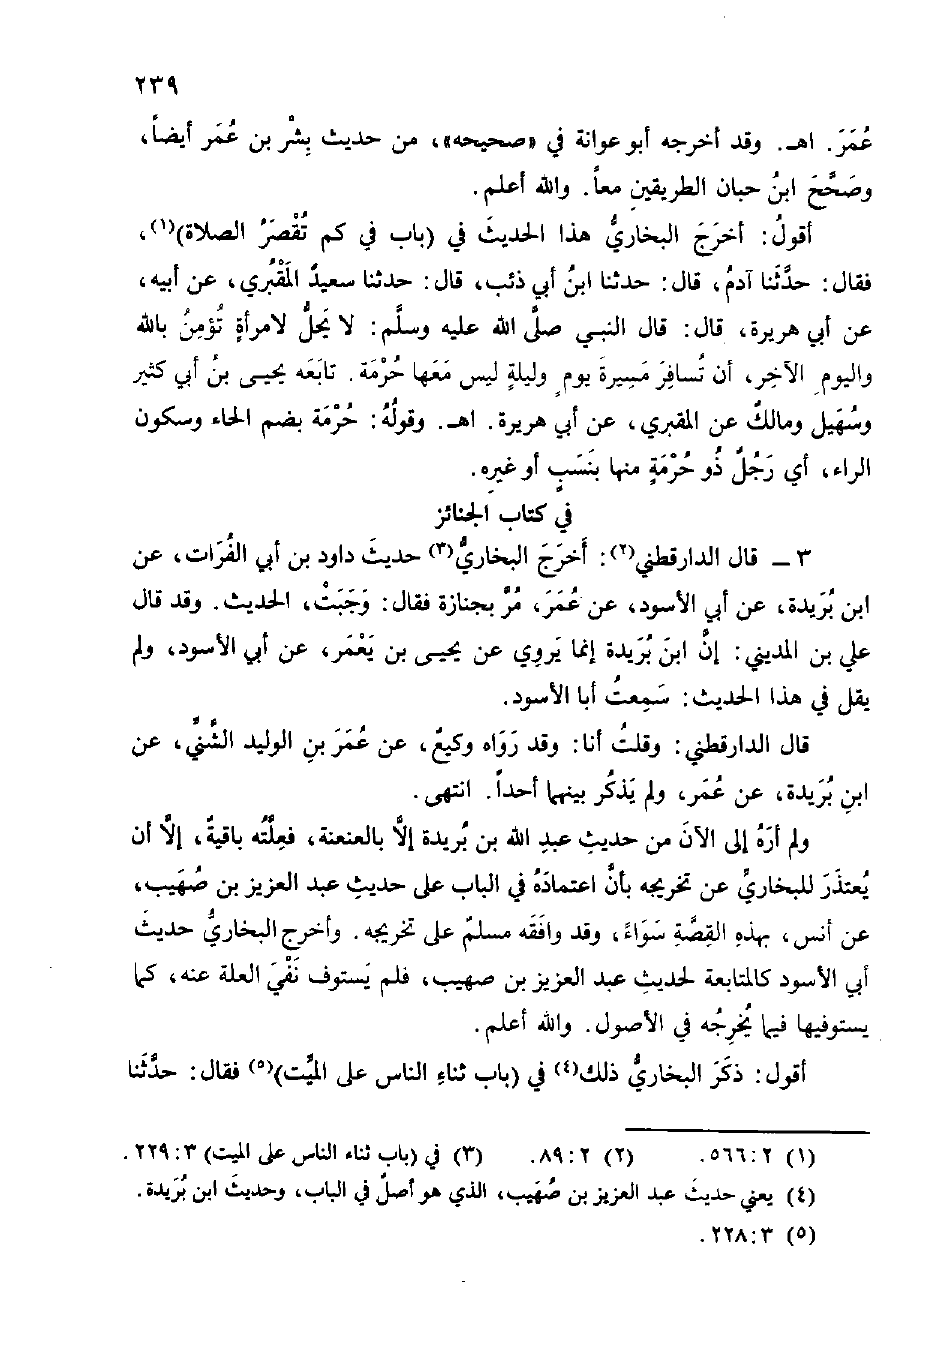 ٢٣٩
عُمَرَ. اهـ. وقد أخرجه أبو عوانة في «صحيحه»، من حديث بِشْر بن عُمَر أيضاً،
وصَحَّحَ ابنُ حبان الطريقينِ معاً. والله أعلم.
أقولُ: أخرَجَ البخاريُّ هذا الحديثَ في (باب في كم تُقْصَرُ الصلاة)(١)،
فقال: حدَّثَنا آدمُ، قال: حدثنا ابنُ أبي ذئب، قال: حدثنا سعيدٌ المَقْبُري، عن أبيه،
عن أبي هريرة، قال: قال النبـي صلَّى الله عليه وسلَّم: لا يَحلُّ لامرأةٍ تُؤمِنُ بالله
واليومِ الآخِرِ، أن تُسافِرَ مَسِيرةَ يومٍ وليلةٍ ليس مَعَها حُرْمَة. تابَعَه يحيـى بنُ أبي كثير
وسُهَيل ومالكٌ عن المقبري، عن أبي هريرة. اهـ. وقولُهُ: حُرْمَة بضم الحاء وسكون
الراء، أي رَجُلٌ ذُو حُرْمَةٍ منها بنَسَبٍ أو غيرِه.
في كتاب الجنائز
٣ ـ قال الدارقطني(٢): أَخرَجَ البخاريُّ(٣) حديثَ داود بن أبي الفُرَات، عن
ابن بُرَيدة، عن أبي الأسود، عن عُمَرَ، مُرَّ بجنازة فقال: وَجَبَتْ، الحديث. وقد قال
علي بن المديني: إنَّ ابنَ بُرَيدة إنما يَروِي عن يحيـى بن يَعْمَر، عن أبي الأسود، ولم
يقل في هذا الحديث: سَمِعتُ أبا الأسود.
قال الدارقطني: وقلتُ أنا: وقد رَوَاه وكيعٌ، عن عُمَرَ بنِ الوليد الشَّنِّي، عن
ابنِ بُرَيدة، عن عُمَر، ولم يَذكُر بينهما أحداً. انتهى.
ولم أرَهُ إلى الآنَ من حديثِ عبدِ الله بن بُريدة إلَّا بالعنعنة، فعِلَّتُه باقيةٌ، إلَّا أن
يُعتذَرَ للبخاريِّ عن تخريجه بأنَّ اعتمادَهُ في الباب على حديثِ عبد العزيز بن صُهَيب،
عن أنس، بهذهِ القِصَّةِ سَوَاءً، وقد وافَقَه مسلمٌ على تخريجه. وأخرج البخاريُّ حديثَ
أبي الأسود كالمتابعة لحديثِ عبد العزيز بن صهيب، فلم يَستوف نَفْيَ العلة عنه، كما
يستوفيها فيما يُخرِجُه في الأصول. والله أعلم.
أقول: ذكَرَ البخاريُّ ذلك(٤) في (باب ثناءِ الناس على الميِّت)(٥) فقال: حدَّثَنا
(١) ٥٦٦:٢. (٢) ٨٩:٢. (٣) في (باب ثناء الناس على الميت) ٢٢٩:٣.
(٤) يعني حديثَ عبد العزيز بن صُهَيب، الذي هو أصلٌ في الباب، وحديثَ ابن بُرَيدة.
(٥) ٢٢٨:٣.